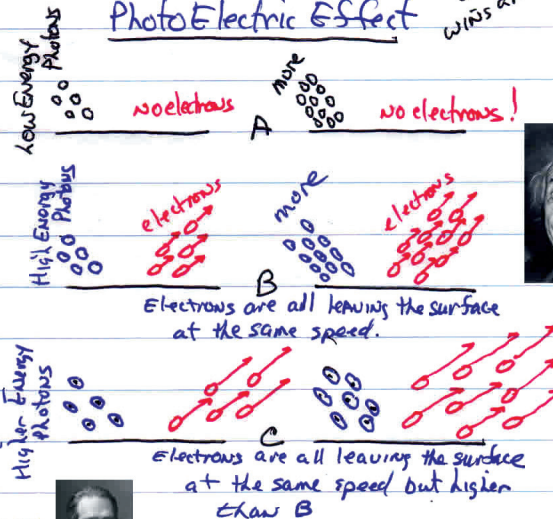 PhotoElectric Effect
WINS
Low Energy
Photons
No electrons
more
No electrons!
A
High Energy
Photons
electrons
more
electrons
B
Electrons are all leaving the surface
at the same speed.
Higher Energy
Photons
C
Electrons are all leaving the surface
at the same speed but higher
than B